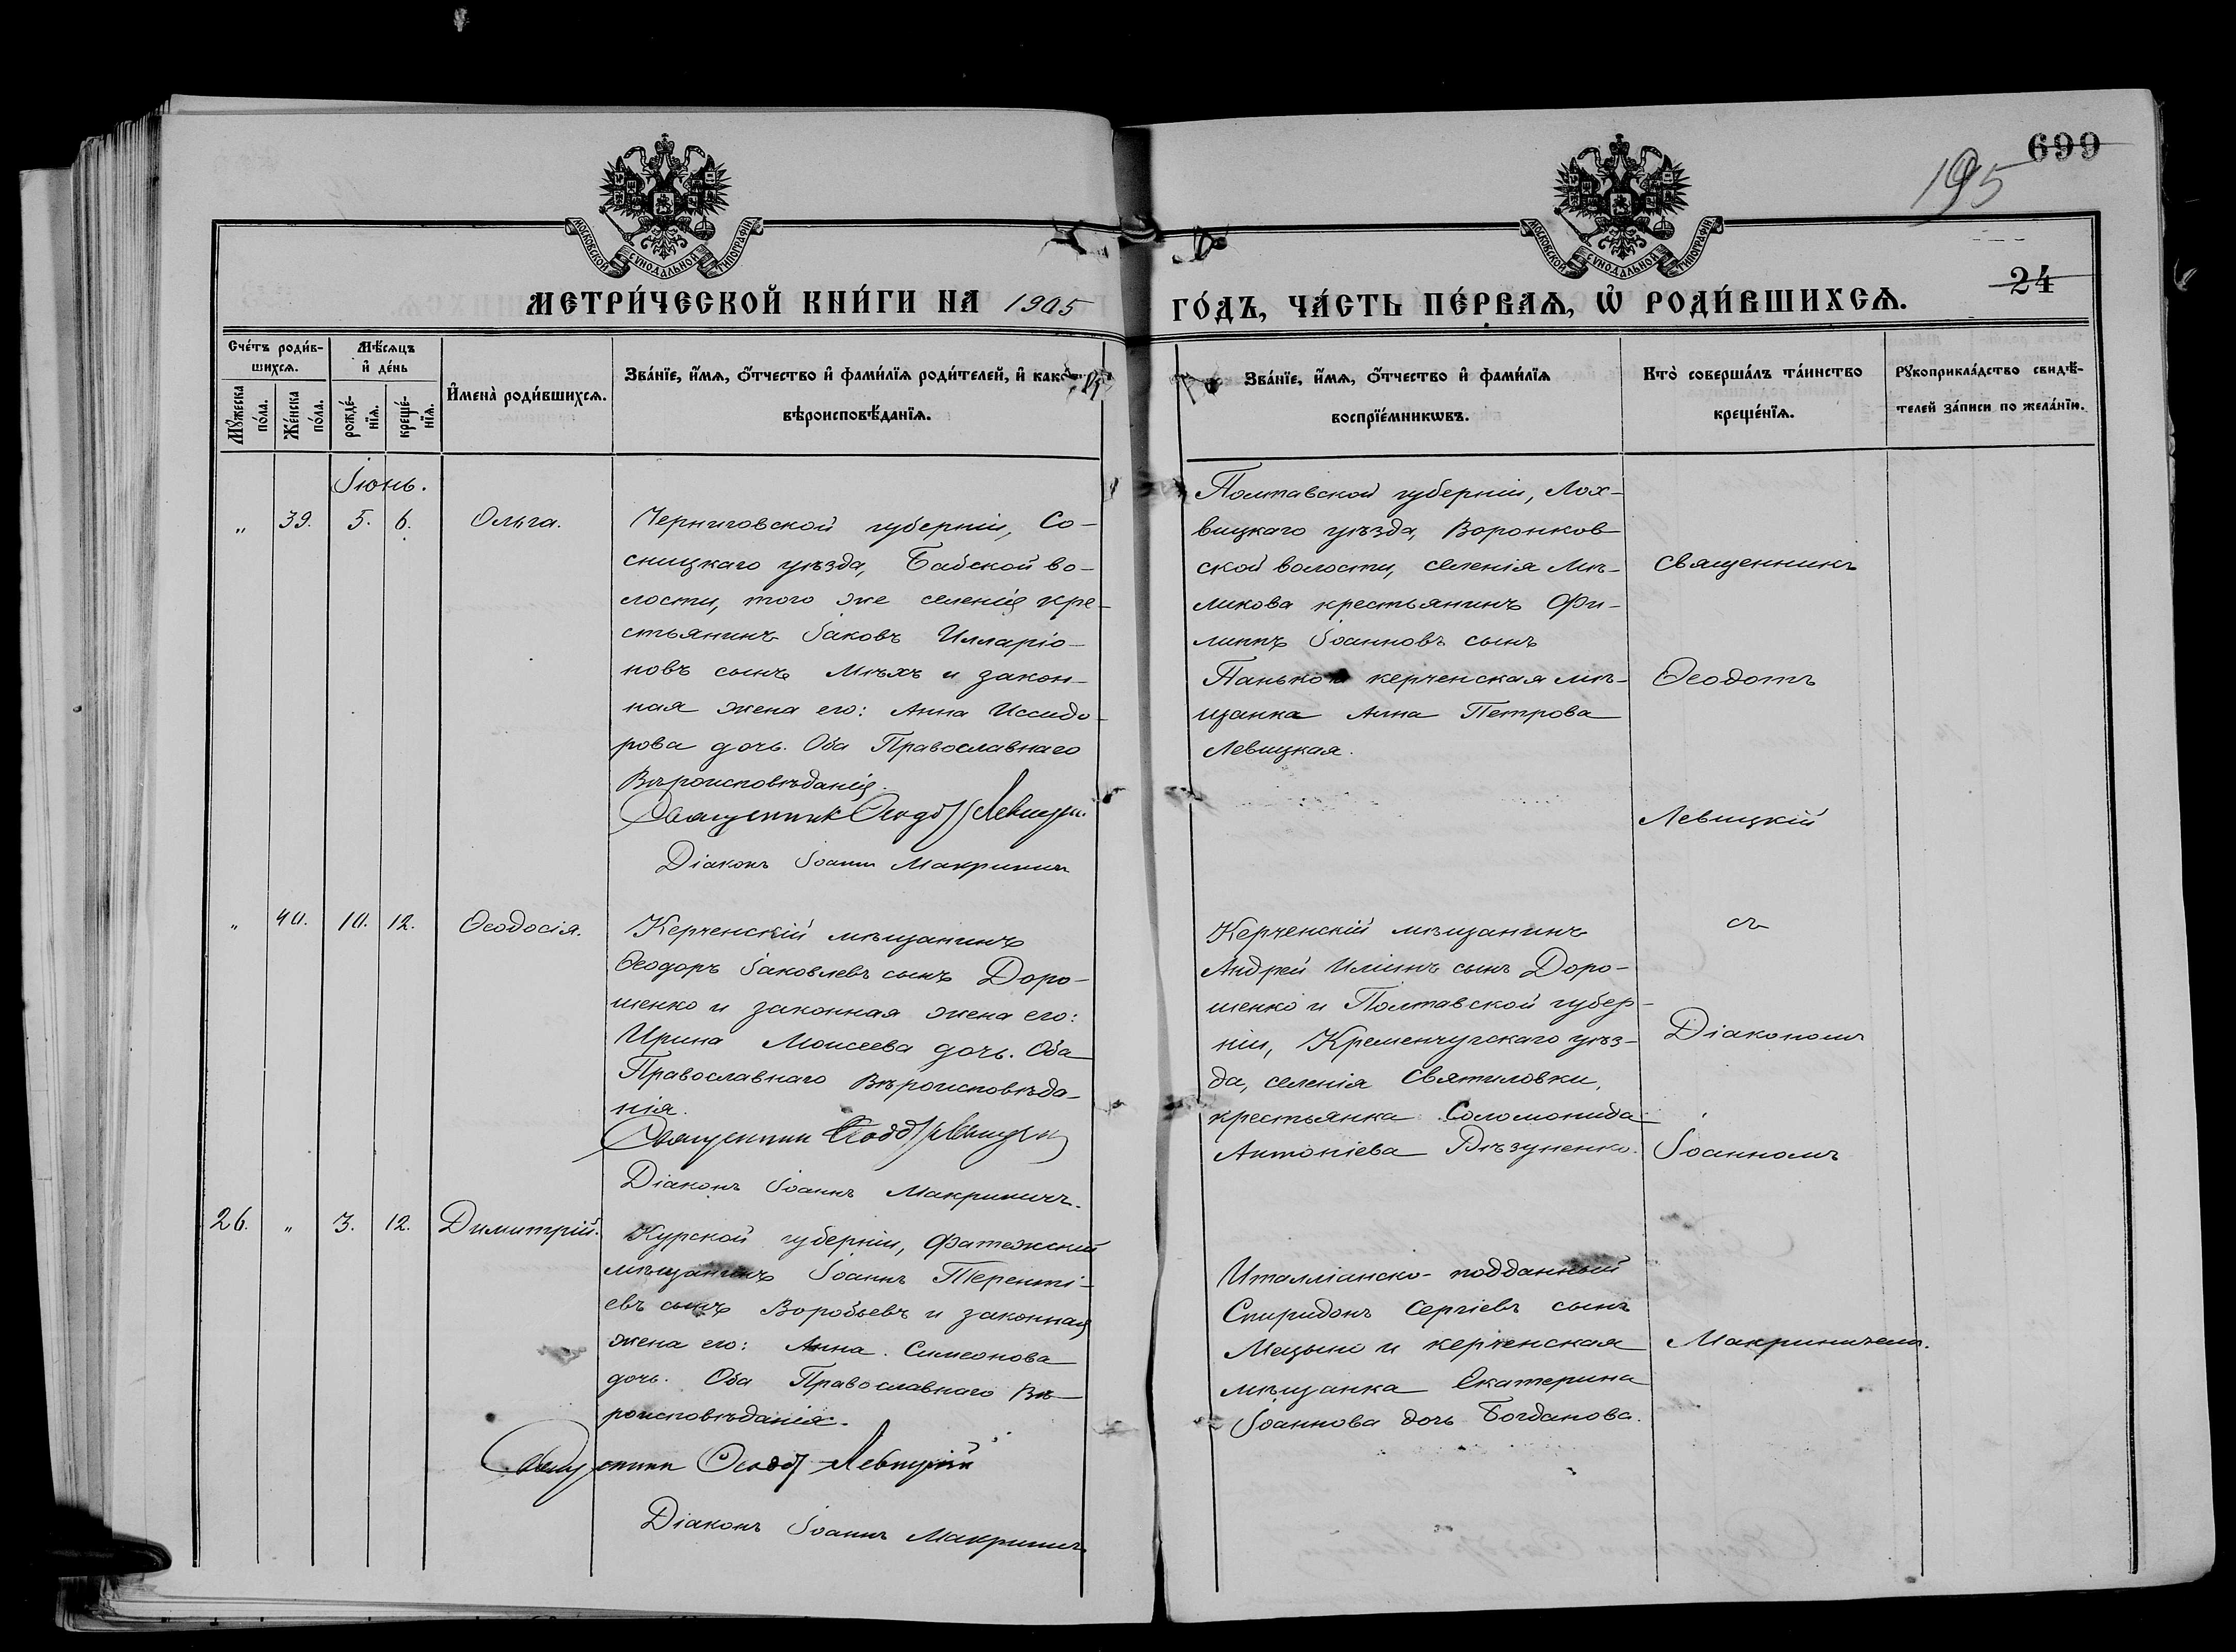 699
195
МОСКОВСКОЙ СѴНОДАЛЬНОЙ ТИПОГРАФІИ
МОСКОВСКОЙ СѴНОДАЛЬНОЙ ТИПОГРАФІИ
24
МЕТРИ́ЧЕСКОЙ КНИ́ГИ НА 1905 ГО́ДЪ, ЧА́СТЬ ПЕ́РВАѦ, Ѡ РОДИ́ВШИХСѦ.
Сче́тъ роди́в-
шихсѧ.
Мꙋ́жеска
по́ла.
Же́нска
по́ла.
Мѣ́сѧцъ
и҆ де́нь
рожде́-
нїѧ.
креще́-
нїѧ.
И҆мена̀ роди́вшихсѧ.
Зва́нїе, и҆́мѧ, ѻ҆́тчество и҆ фами́лїѧ роди́телей, и҆ како
вѣроисповѣ́данїѧ.
Зва́нїе, и҆́мѧ, ѻ҆́тчество и҆ фами́лїѧ
воспрїе́мникѡвъ.
Кто̀ соверша́лъ та́инство
креще́нїѧ.
Рꙋкоприкла́дство свидѣ́-
телей за́писи по жела́нїю.
Іюнь.
„ 39. 5. 6. Ольга.
Черниговской губерніи, Со-
сницкаго уѣзда, Бабской во-
лости, того же селенія кре-
стьянинъ Іаковъ Илларіо-
новъ сынъ Мѣхъ и закон-
ная жена его: Анна Исидо-
рова дочь. Оба Православнаго
Вѣроисповѣданія.
Священник Ѳеодотъ Левицкій
Діаконъ Іоаннъ Макриничъ
Полтавской губерніи, Лох-
вицкаго уѣзда, Воронков
ской волости, селенія Мѣ-
ликова крестьянинъ Фи-
липпъ Іоанновъ сынъ
Панько и керченская мѣ-
щанка Анна Петрова
Левицкая.
Священникъ
Ѳеодотъ
Левицкій
„ 40. 10. 12. Ѳеодосія.
Керченскій мѣщанинъ
Ѳеодоръ Іаковлевъ сынъ Доро-
шенко и законная жена его:
Ирина Моисеева дочь. Оба
Православнаго Вѣроисповѣда-
нія.
Священник Ѳеодотъ Левицкій
Діаконъ Іоаннъ Макриничъ.
Керченскій мѣщанинъ
Андрей Иліинъ сынъ Доро-
шенко и Полтавской губер-
ніи, Кременчугскаго уѣз-
да, селенія Святиловки,
крестьянка Соломонида
Антоніева
съ
Діакономъ
Іоанномъ
26. „ 3. 12. Димитрій.
Курской губерніи, Фатежскій
мѣщанинъ Іоаннъ Терентi-
евъ сынъ Воробьевъ и законная
жена его: Анна Симеонова
дочь. Оба Православнаго Вѣ-
роисповѣданія.
Священник Ѳеодотъ Левицкій
Діаконъ Іоаннъ Макриничъ
Италліанско-подданный
Спиридонъ Сергіевъ сынъ
и керченская
мѣщанка Екатерина
Іоаннова дочь Богданова.
Макриничемъ.